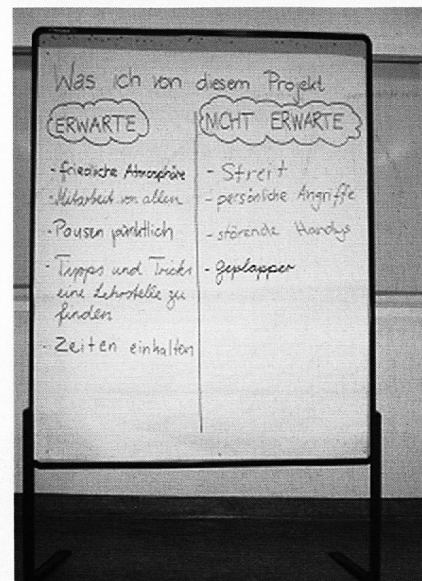 Was ich von diesem Projekt
ERWARTE
- friedliche Atmosphäre
- Mitarbeit von allen
- Pausen pünktlich
- Tipps und Tricks
eine Lehrstelle zu
finden
- Zeiten einhalten
NICHT ERWARTE
- Streit
- persönliche Angriffe
- störende Handys
- Geplapper